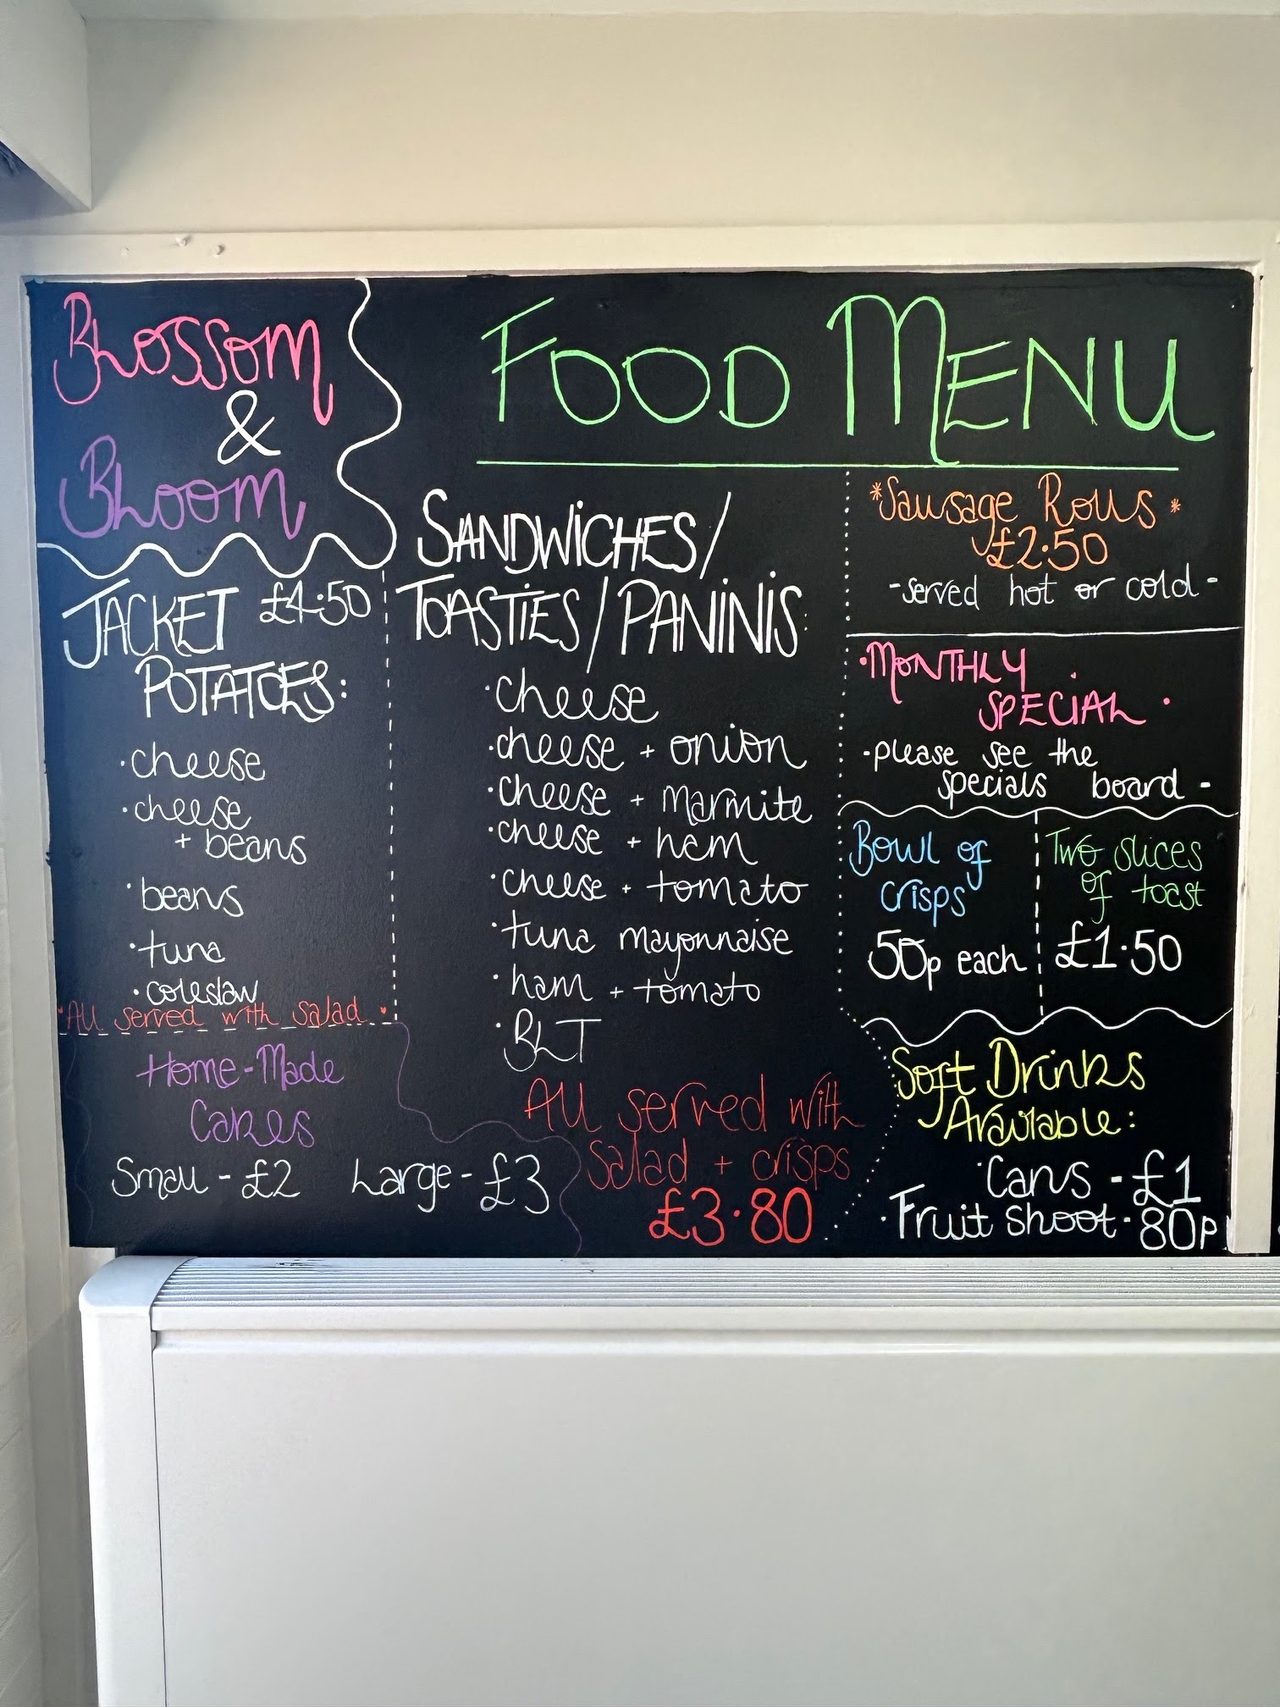 Blossom
&
Bloom
FOOD MENU
JACKET £4.50
POTATOES:
·cheese
·cheese
+ beans
·beans
·tuna
·coleslaw
·All served with salad·
Home-Made
Cakes
Small - £2 Large - £3
SANDWiCHES/
TOASTiES/PANiNiS:
·cheese
·cheese + onion
·cheese + marmite
·cheese + ham
·cheese + tomato
·tuna mayonnaise
·ham + tomato
·BLT
All served with
salad + crisps
£3.80
*Sausage Rolls*
£2.50
-served hot or cold-
·MONTHLY
SPECiAL·
-please see the
specials board-
Bowl of
crisps
50p each
Two slices
of toast
£1.50
Soft Drinks
Available:
·Cans - £1
·Fruit shoot - 80p